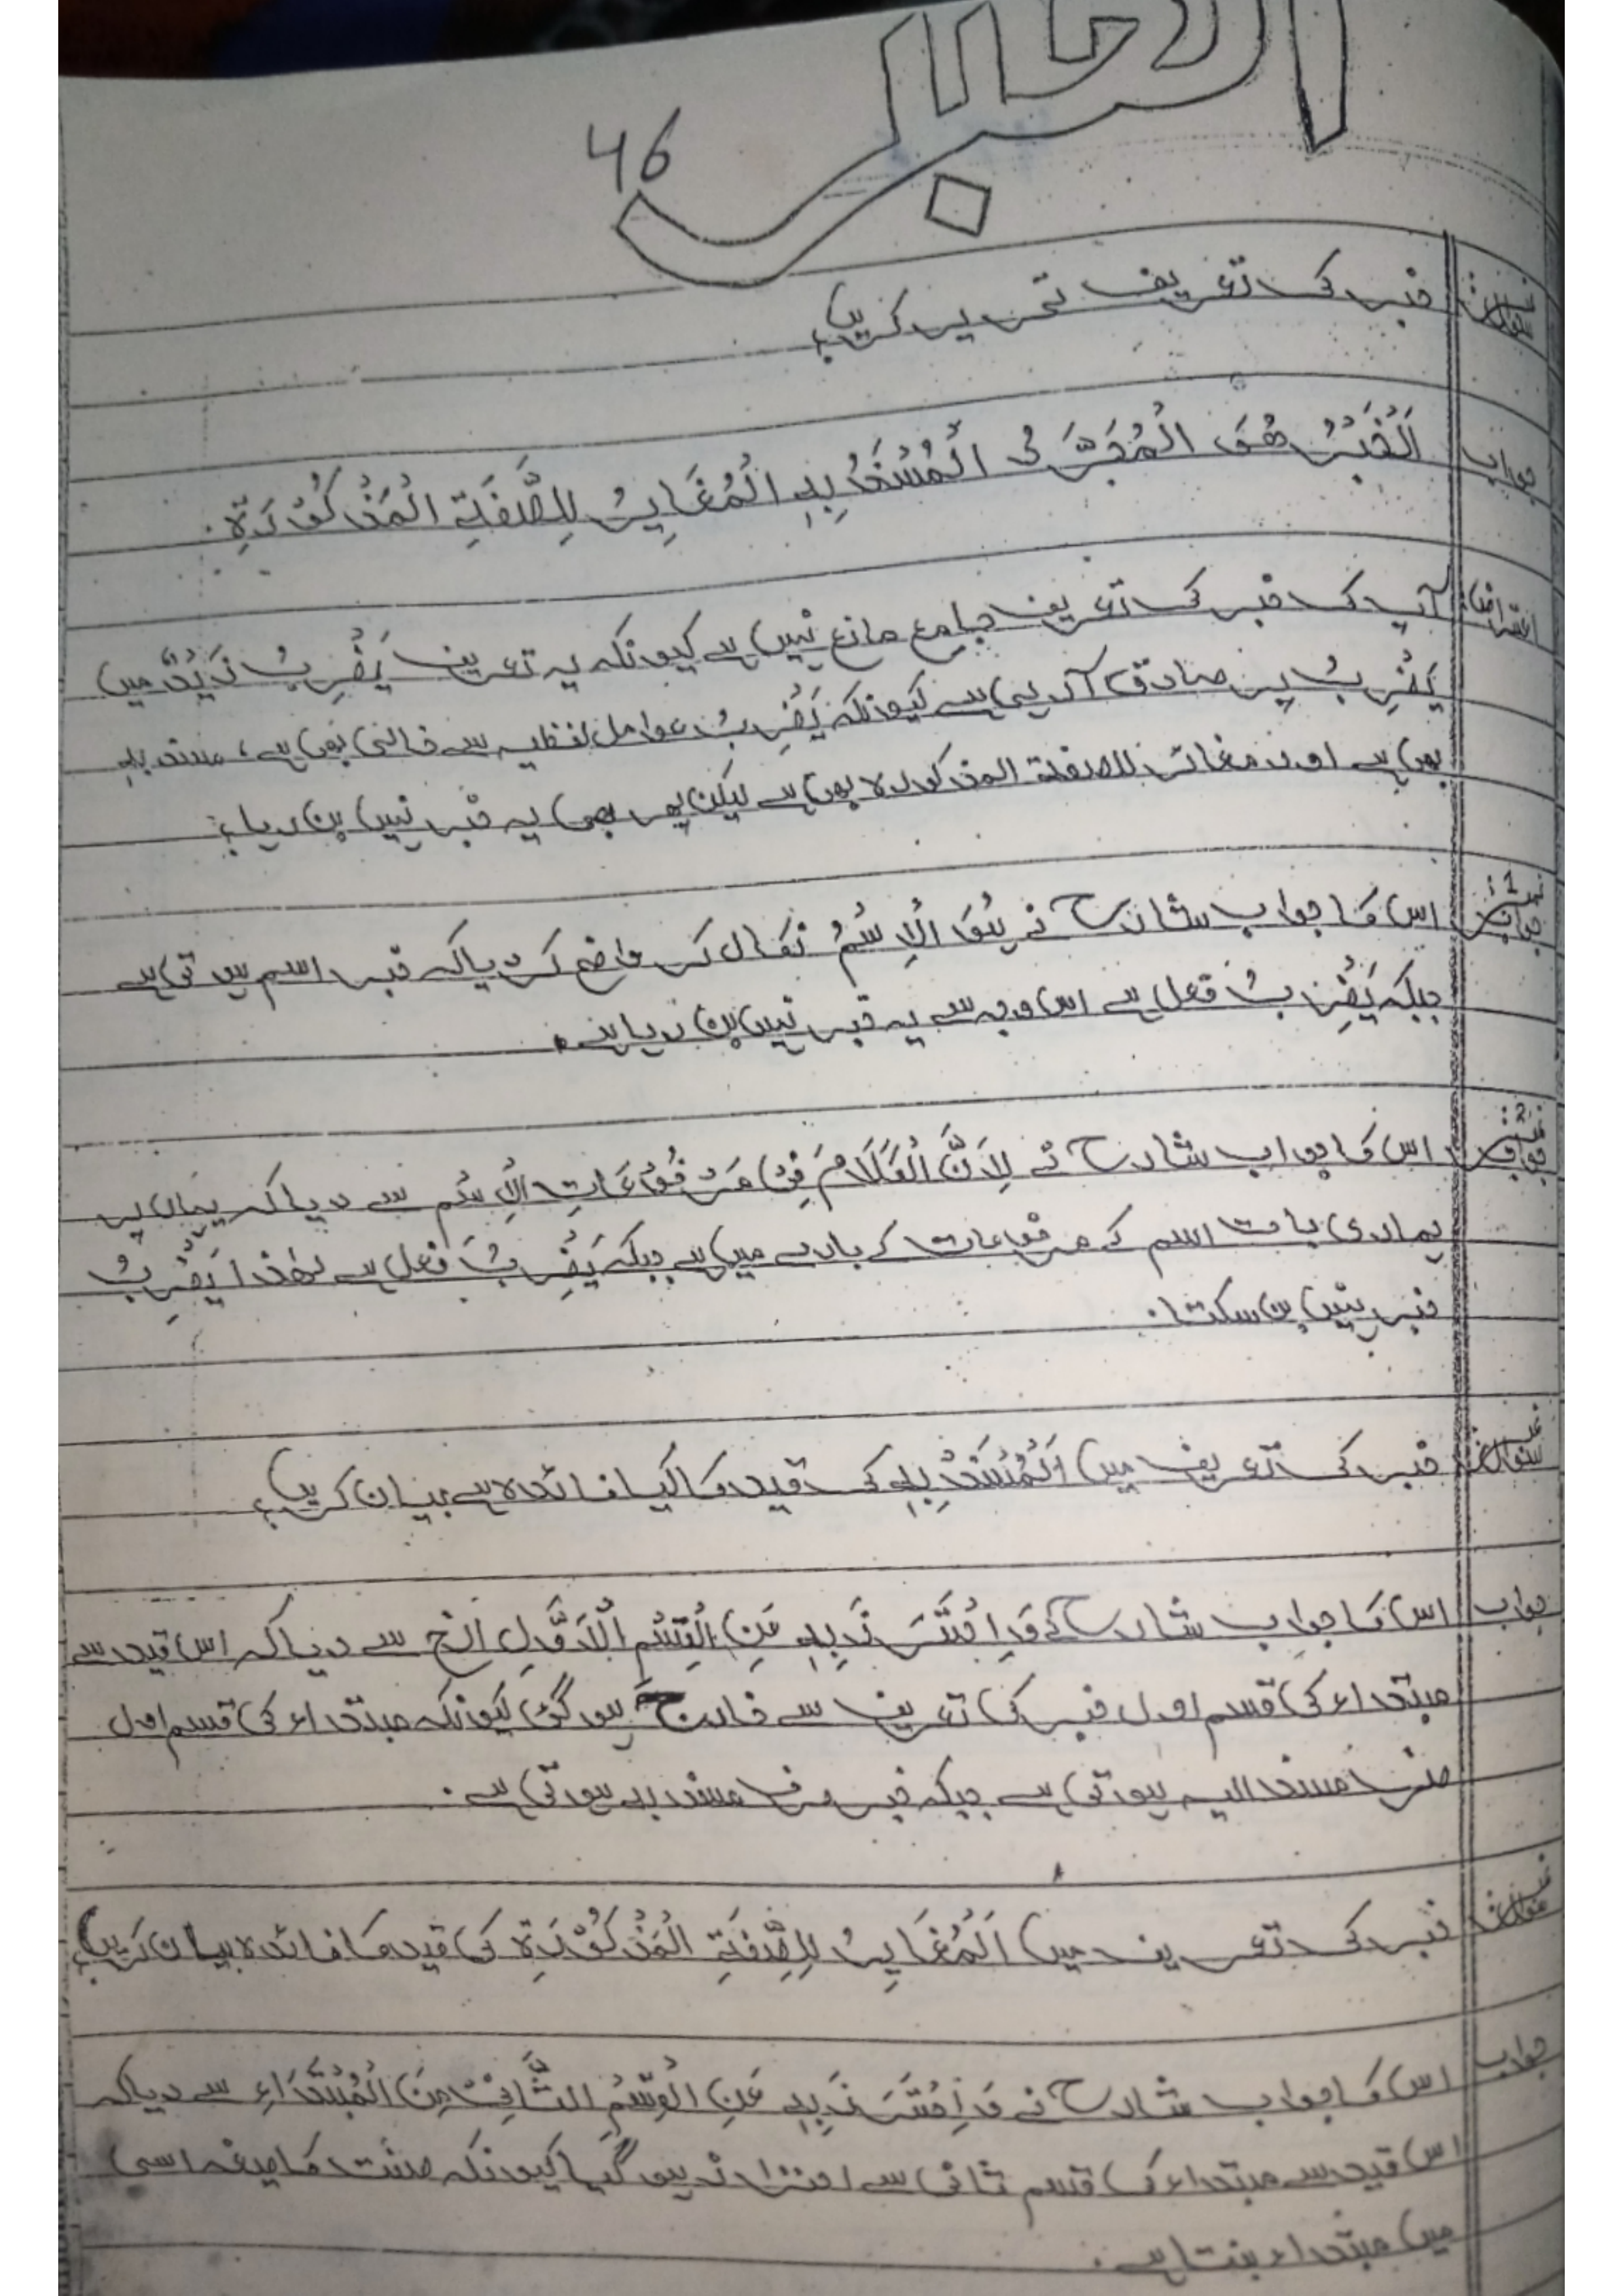 الخبر
46
سوال: خبر کی تعریف تحریر کریں؟
جواب اَلْخَبْرُ هُوَ الْمُجَرَّدُ الْمُسْنَدُ بِهِ الْمُغَایِرُ لِلصِّفَةِ الْمَذْکُوْرَةِ۔
اعتراض: آپ کی خبر کی تعریف جامع مانع نہیں ہے کیونکہ یہ تعریف یَضْرِبُ زَیْدٌ میں
یَضْرِبُ پر صادق آ رہی ہے کیونکہ یَضْرِبُ عوامل لفظیہ سے خالی بھی ہے، مسند بہ
بھی ہے اور مغائر للصفة المذکورہ بھی ہے لیکن پھر بھی یہ خبر نہیں بن رہا؟
جواب نمبر 1: اس کا جواب شارح نے هُوَ الْاِسْمُ نکال کر واضح کر دیا کہ خبر اسم ہوتی ہے
جبکہ یَضْرِبُ فعل ہے اس وجہ سے یہ خبر نہیں بن رہا ہے۔
جواب نمبر 2: اس کا جواب شارح نے لِاَنَّ الْکَلَامَ فِیْ مَرْفُوْعَاتِ الْاِسْمِ سے دیا کہ یہاں پر
ہماری بات اسم کے مرفوعات کے بارے میں ہے جبکہ یَضْرِبُ فعل ہے لہٰذا یَضْرِبُ
خبر نہیں بن سکتا۔
سوال: خبر کی تعریف میں اَلْمُسْنَدُ بِهِ کی قید کا کیا فائدہ ہے بیان کریں؟
جواب اس کا جواب شارح نے وَ اِحْتَرَزَ بِهِ عَنِ الْقِسْمِ الْاَوَّلِ الخ سے دیا کہ اس قید سے
مبتداء کی قسم اول خبر کی تعریف سے خارج ہو گئی کیونکہ مبتداء کی قسم اول
صرف مسند الیہ ہوتی ہے جبکہ خبر صرف مسند بہ ہوتی ہے۔
سوال: خبر کی تعریف میں اَلْمُغَایِرُ لِلصِّفَةِ الْمَذْکُوْرَةِ کی قید کا فائدہ بیان کریں؟
جواب اس کا جواب شارح نے وَ اِحْتَرَزَ بِهِ عَنِ الْقِسْمِ الثَّانِیْ مِنَ الْمُبْتَدَاءِ سے دیا کہ
اس قید سے مبتداء کی قسم ثانی سے احتراز ہو گیا کیونکہ صفت کا صیغہ اسی
میں مبتداء بنتا ہے۔